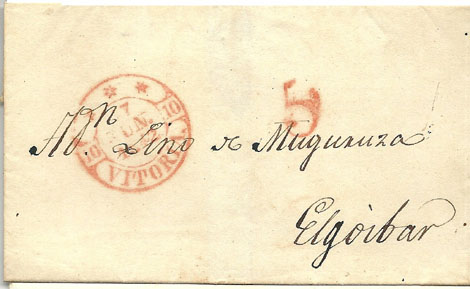 5
10
7
JUN.
10
VITORI
A Dn Lino de Muguruza
Elgóibar